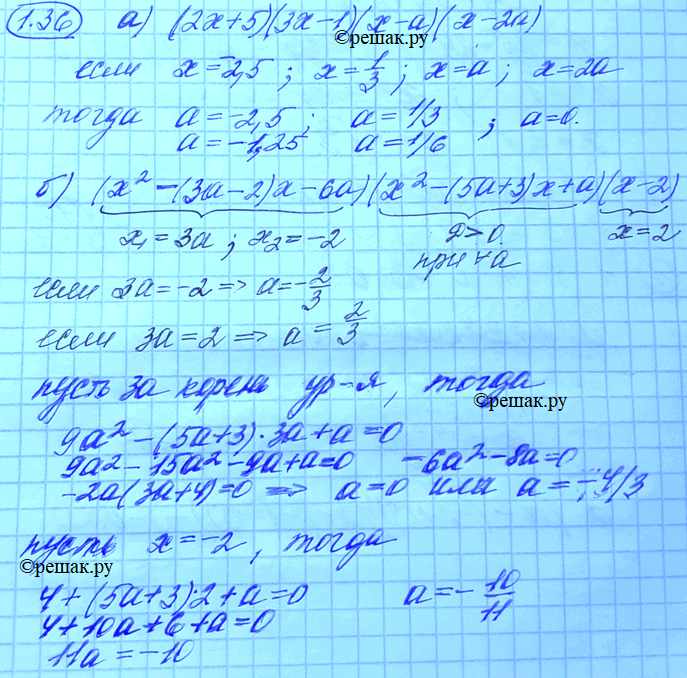 1.36 а) (2x+5)(3x-1)(x-a)(x-2a)
©решак.ру
если x=-2,5; x=1/3; x=a; x=2a
тогда a=-2,5; a=1/3; a=0.
a=-1,25 a=1/6
б) (x²-(3a-2)x-6a)(x²-(5a+3)x+a)(x-2)
x₁=3a; x₂=-2 D>0. x=2
при ∀a
если 3a=-2 => a=-2/3
если 3a=2 => a=2/3
пусть 3a корень ур-я, тогда
©решак.ру
9a²-(5a+3)·3a+a=0
9a²-15a²-9a+a=0 -6a²-8a=0
-2a(3a+4)=0 => a=0 или a=-4/3
пусть x=-2, тогда
©решак.ру
4+(5a+3)·2+a=0 a=-10/11
4+10a+6+a=0
11a=-10